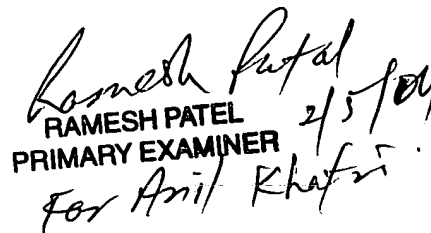 Ramesh Patal
RAMESH PATEL 2/5/04
PRIMARY EXAMINER
For Anil Khatri.